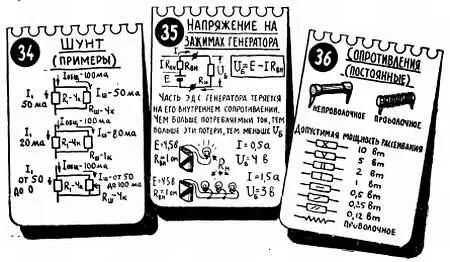 34
ШУНТ
(ПРИМЕРЫ)
Iобщ-100ма
I₁
50ма
R₁-4к
Iш-50ма
Rш-4к
Iобщ-100ма
I₁
20ма
R₁-4к
Iш-80ма
Rш-1к
Iобщ-100ма
I₁
от 50
до 0
R₁-4к
Iш-от 50
до 100ма
Rш-4к
35
НАПРЯЖЕНИЕ НА
ЗАЖИМАХ ГЕНЕРАТОРА
I
IRвн
Rвн
E
Rн
Uб
Uб=E-IRвн
ЧАСТЬ ЭДС ГЕНЕРАТОРА ТЕРЯЕТСЯ
НА ЕГО ВНУТРЕННЕМ СОПРОТИВЛЕНИИ.
ЧЕМ БОЛЬШЕ ПОТРЕБЛЯЕМЫЙ ТОК, ТЕМ
БОЛЬШЕ ЭТИ ПОТЕРИ, ТЕМ МЕНЬШЕ Uб
E=4,5в
Rвн=1ом
Rн
I=0,5а
Uб=4В
E=4,5в
Rвн=1ом
I=1,5а
Uб=3В
36
СОПРОТИВЛЕНИЯ
(ПОСТОЯННЫЕ)
НЕПРОВОЛОЧНОЕ
ПРОВОЛОЧНОЕ
ДОПУСТИМАЯ МОЩНОСТЬ РАССЕИВАНИЯ
X 10 Вт
V 5 Вт
II 2 Вт
I 1 Вт
0,5 Вт
0,25 Вт
0,12 Вт
ПРОВОЛОЧНОЕ